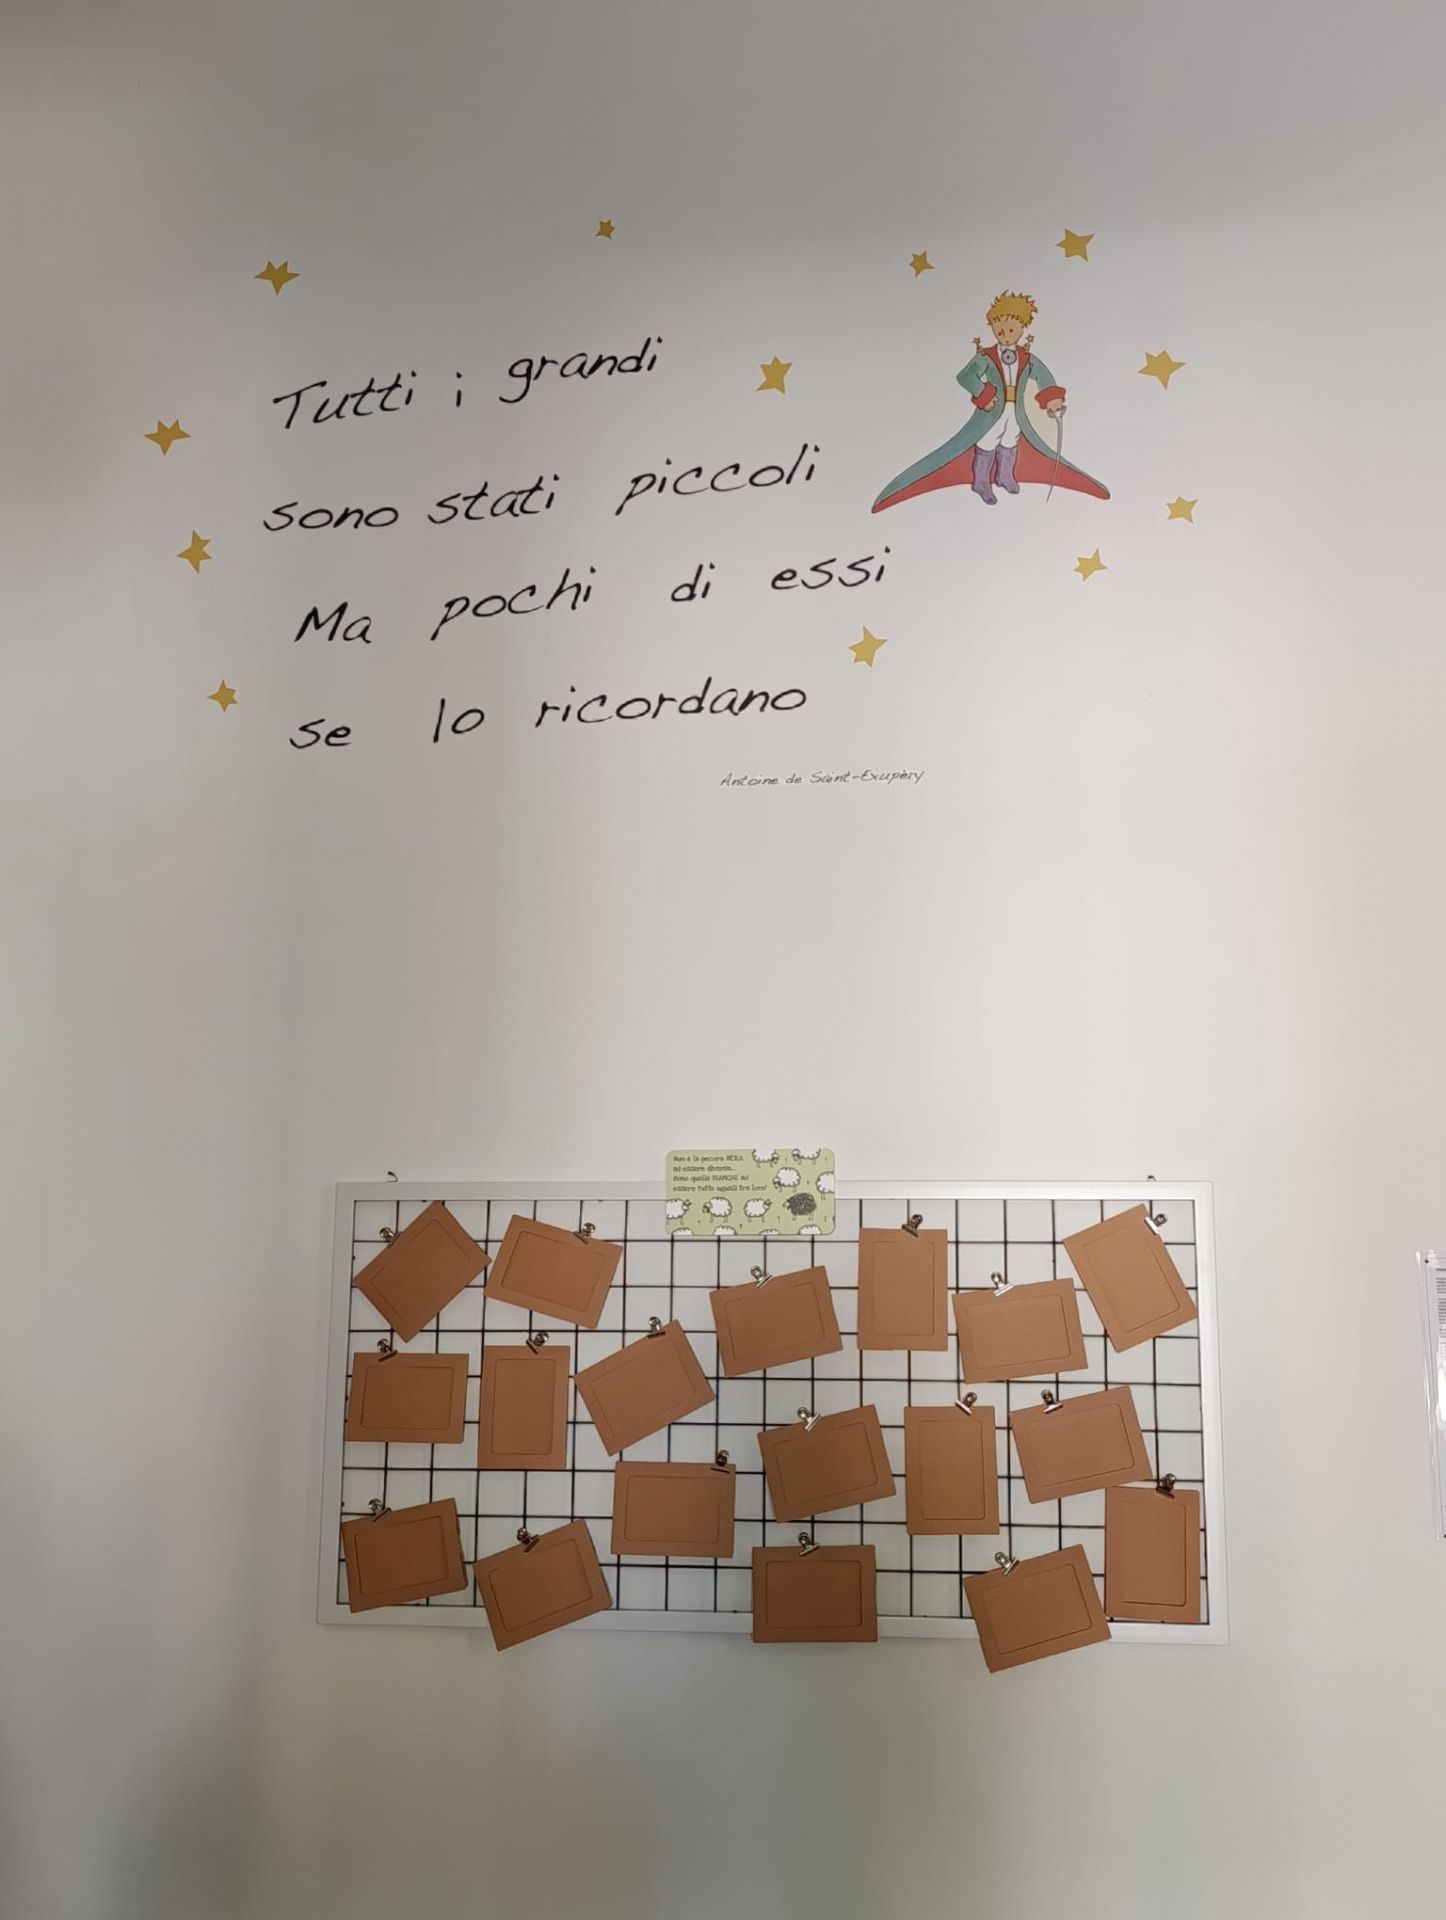 Tutti i grandi
sono stati piccoli
Ma pochi di essi
se lo ricordano
Antoine de Saint-Exupèry
Non è la pecora NERA
ad essere diversa...
Sono quelle BIANCHE ad
essere tutte uguali tra loro!